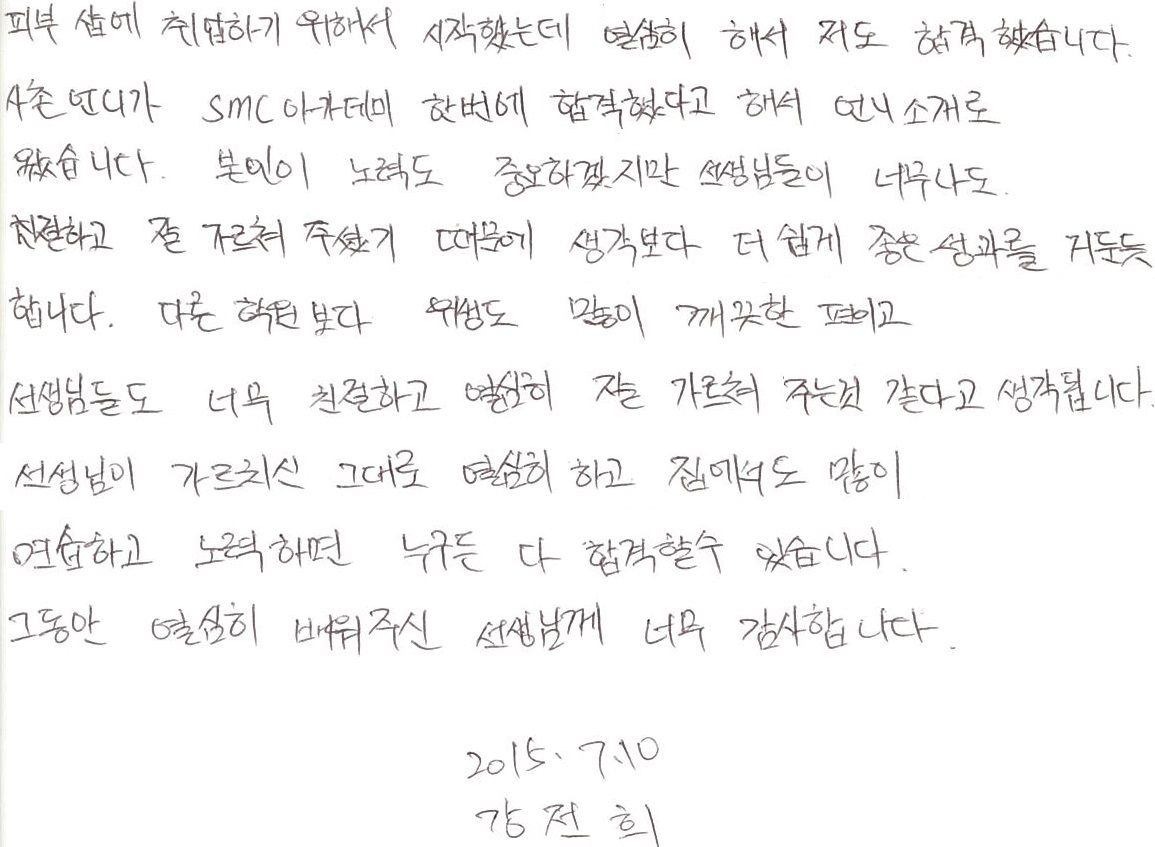 피부 샵에 취업하기 위해서 시작했는데 열심히 해서 저도 합격 했습니다.
사촌 언니가 SMC아카데미 한번에 합격했다고 해서 언니 소개로
왔습니다. 본인이 노력도 중요하겠지만 선생님들이 너무나도.
친절하고 잘 가르쳐 주셨기 때문에 생각보다 더 쉽게 좋은 성과를 거둔듯
합니다. 다른 학원보다 위생도 많이 깨끗한 편이고
선생님들도 너무 친절하고 열심히 잘 가르쳐 주는것 같다고 생각됩니다.
선생님이 가르치신 그대로 열심히 하고 집에서도 많이
연습하고 노력하면 누구든 다 합격할수 있습니다.
그동안 열심히 배워주신 선생님께 너무 감사합니다.
2015. 7.10
강전희